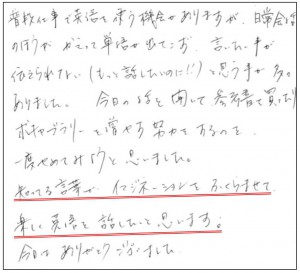 普段仕事で英語を使う機会がありますが、日常会話
のほうが かえって単語が出てこず、言いたい事が
伝えられない(もっと話したいのに!!)と思う事が多々
ありました。 今日の話を聞いて参考書を買ったり
ボキャブラリーを増やす努力をするのを
一度やめてみようと思いました。
知ってる言葉で イマジネーションをふくらませて
楽しく英語を話したいと思います。
今日は ありがとうございました